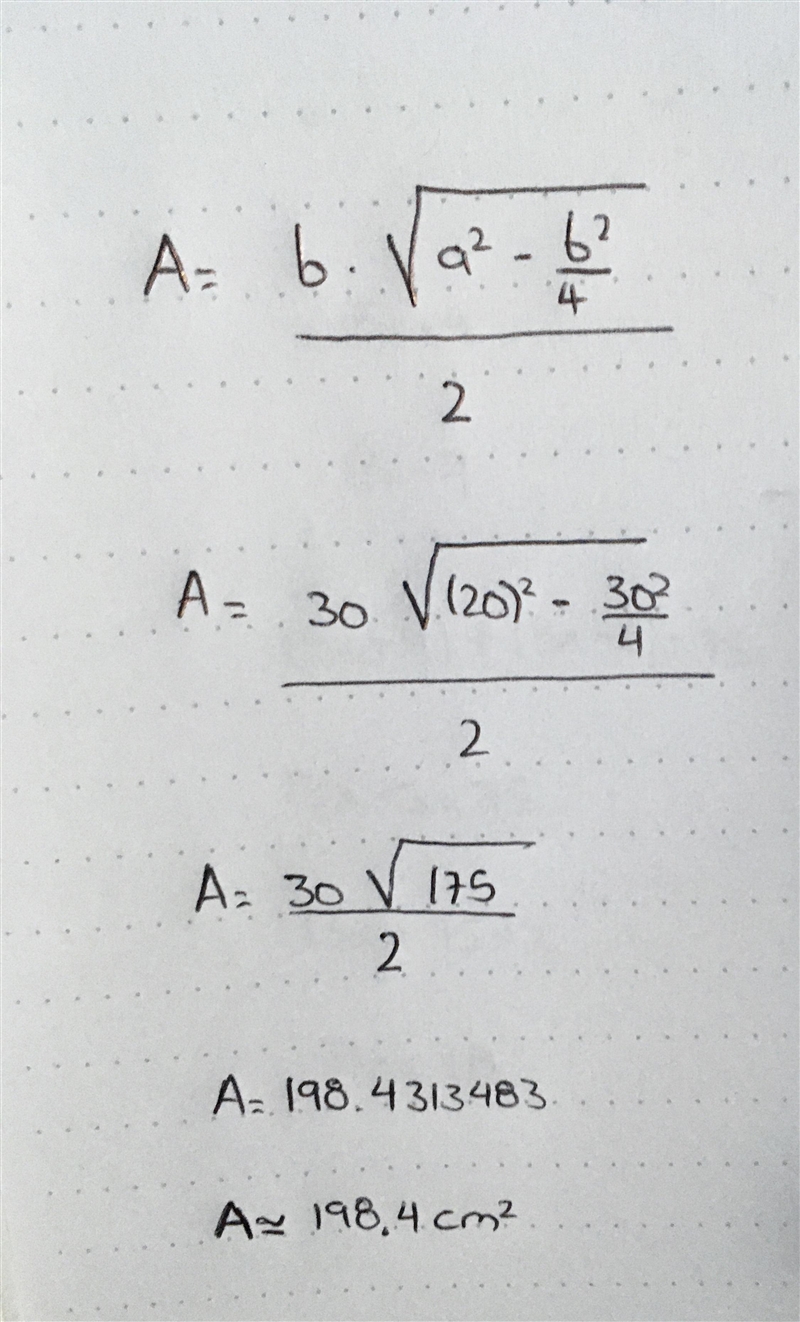 A = b · √(a² - b²/4) / 2
A = 30 √((20)² - 30²/4) / 2
A = 30 √175 / 2
A = 198.4313483
A ≃ 198.4 cm²